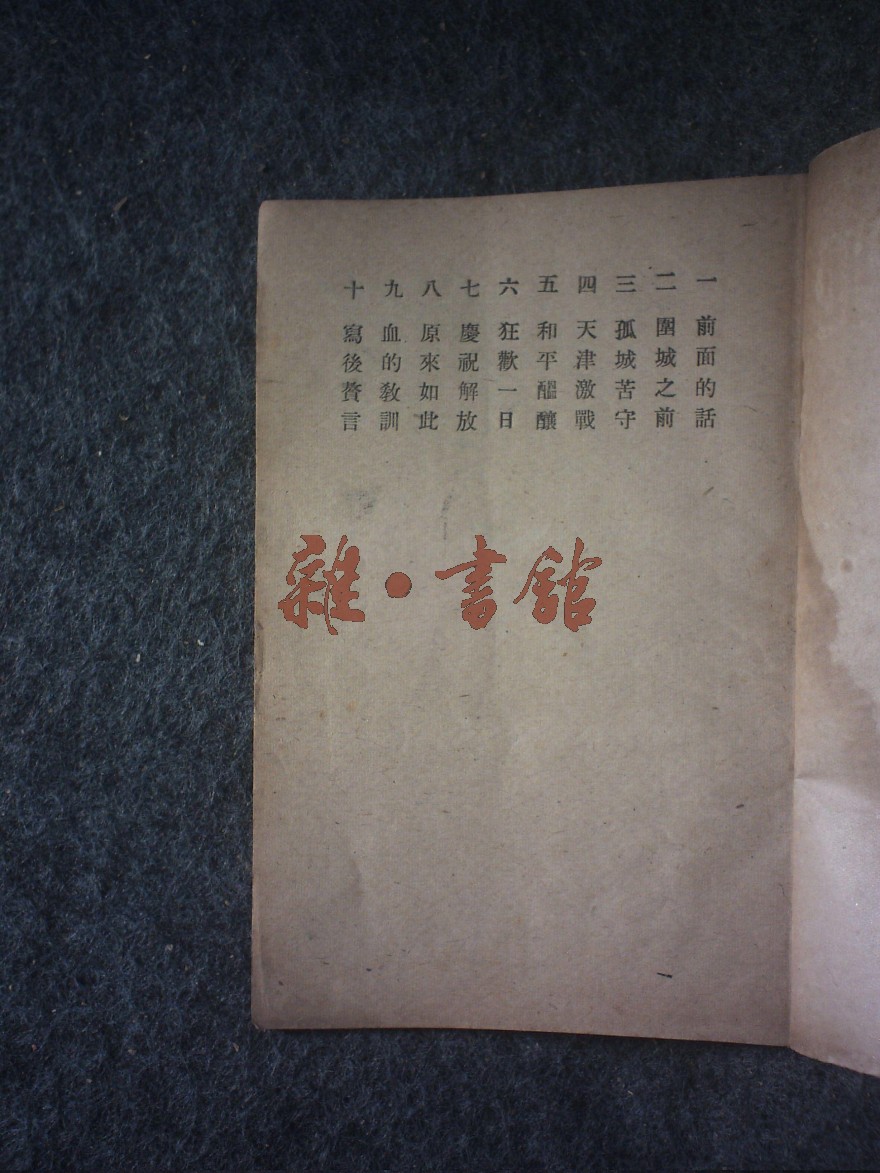 一 前面的話
二 圍城之前
三 孤城苦守
四 天津激戰
五 和平醞釀
六 狂歡一日
七 慶祝解放
八 原來如此
九 血的教訓
十 寫後贅言
雜·書館